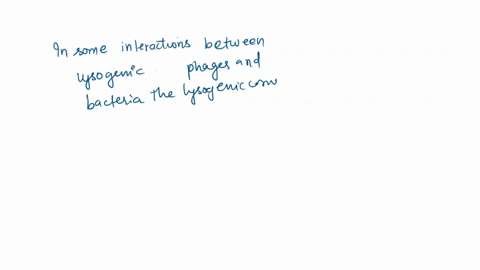 In some interactions between
lysogenic phages and
bacteria The lysogenic conv